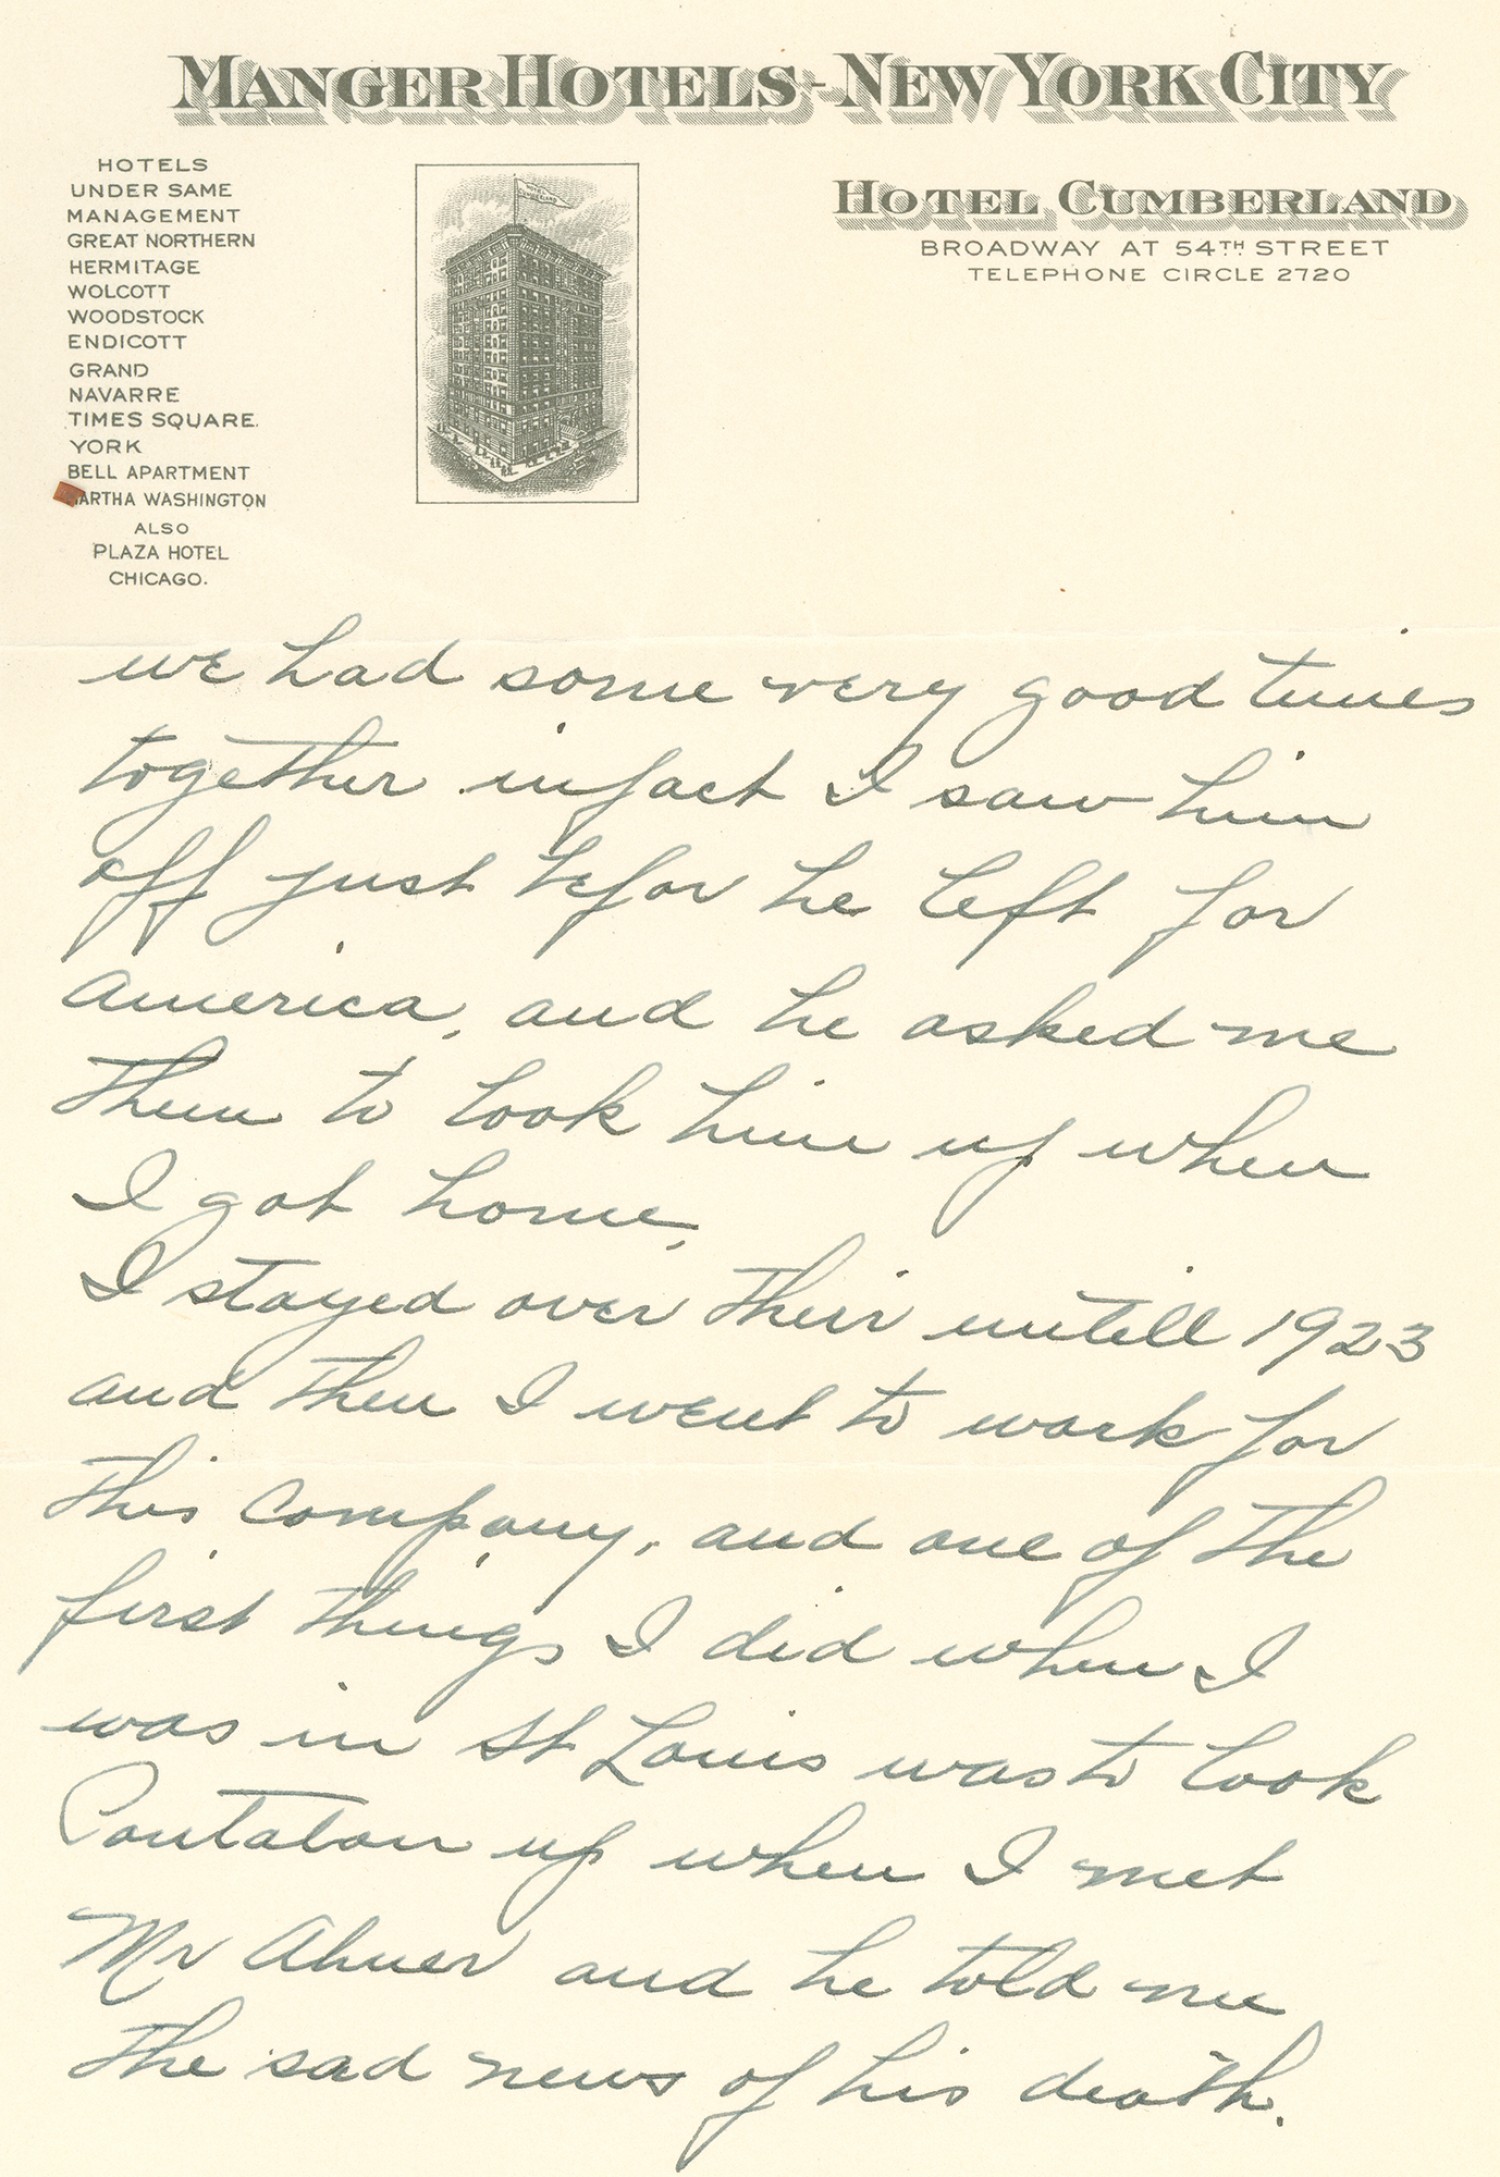 MANGER HOTELS-NEW YORK CITY
HOTELS
UNDER SAME
MANAGEMENT
GREAT NORTHERN
HERMITAGE
WOLCOTT
WOODSTOCK
ENDICOTT
GRAND
NAVARRE
TIMES SQUARE.
YORK
BELL APARTMENT
MARTHA WASHINGTON
ALSO
PLAZA HOTEL
CHICAGO.
HOTEL CUMBERLAND
HOTEL CUMBERLAND
BROADWAY AT 54TH STREET
TELEPHONE CIRCLE 2720
we had some very good times
together infact I saw him
off just befor he left for
america, and he asked me
then to look him up when
I got home,
I stayed over their untill 1923
and then I went to work for
this Company, and one of the
first things I did when I
was in St Louis was to look
up when I met
Mr Ahner and he told me
the sad news of his death.